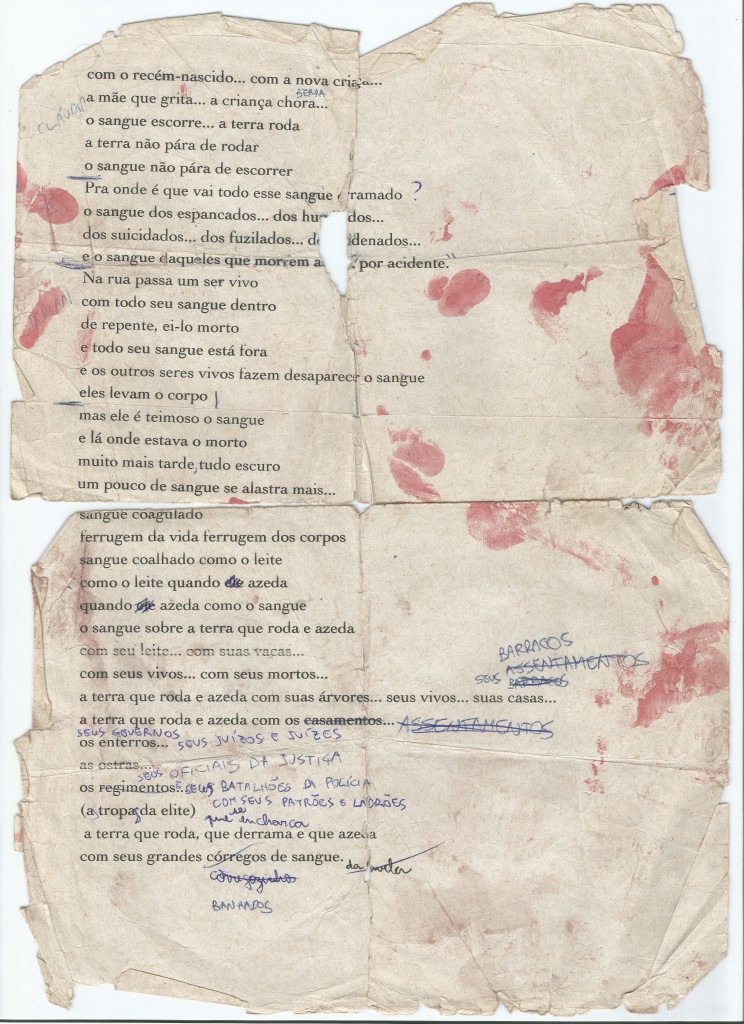 com o recém-nascido... com a nova criança...
BERRA
a mãe que grita... a criança chora...
CLÁUDIA
o sangue escorre... a terra roda
a terra não pára de rodar
o sangue não pára de escorrer
Pra onde é que vai todo esse sangue rramado ?
o sangue dos espancados... dos hu dos...
dos suicidados... dos fuzilados... d denados...
e o sangue daqueles que morrem a "por acidente."
Na rua passa um ser vivo
com todo seu sangue dentro
de repente, ei-lo morto
e todo seu sangue está fora
e os outros seres vivos fazem desaparecer o sangue
eles levam o corpo
mas ele é teimoso o sangue
e lá onde estava o morto
muito mais tarde, tudo escuro
um pouco de sangue se alastra mais...
sangue coagulado
ferrugem da vida ferrugem dos corpos
sangue coalhado como o leite
como o leite quando azeda
quando azeda como o sangue
o sangue sobre a terra que roda e azeda
BARRACOS
com seu leite... com suas vacas...
ASSENTAMENTOS
com seus vivos... com seus mortos...
SEUS BARRACOS
a terra que roda e azeda com suas árvores... seus vivos... suas casas...
a terra que roda e azeda com os casamentos... ASSENTAMENTOS
SEUS GOVERNOS
os enterros... SEUS JUÍZOS E JUÍZES
as ostras...
SEUS OFICIAIS DA JUSTIÇA
os regimentos... SEUS BATALHÕES DA POLÍCIA
(a tropa da elite) COM SEUS PATRÕES E LADRÕES
que se encharca
a terra que roda, que derrama e que azeda
com seus grandes córregos de sangue.
da
corregozinhos
BANHADOS